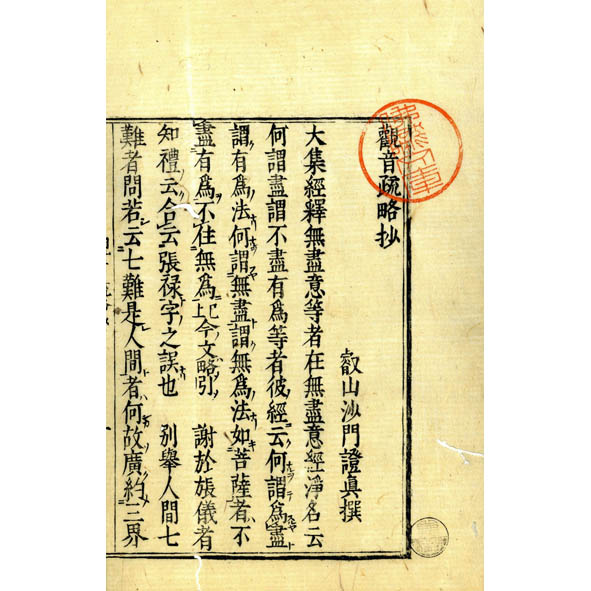 觀音疏略抄
叡山沙門證真撰
大集經釋無盡意等者在無盡意經淨名云
何謂盡謂不盡有爲等者彼經云何謂爲盡
謂有爲法何謂無盡謂無爲法如菩薩者不
盡有爲不住無爲上已今文略引 謝於張儀者
知禮云合云張祿字之誤也 別舉人間七
難者問若云七難是人間者何故廣約三界